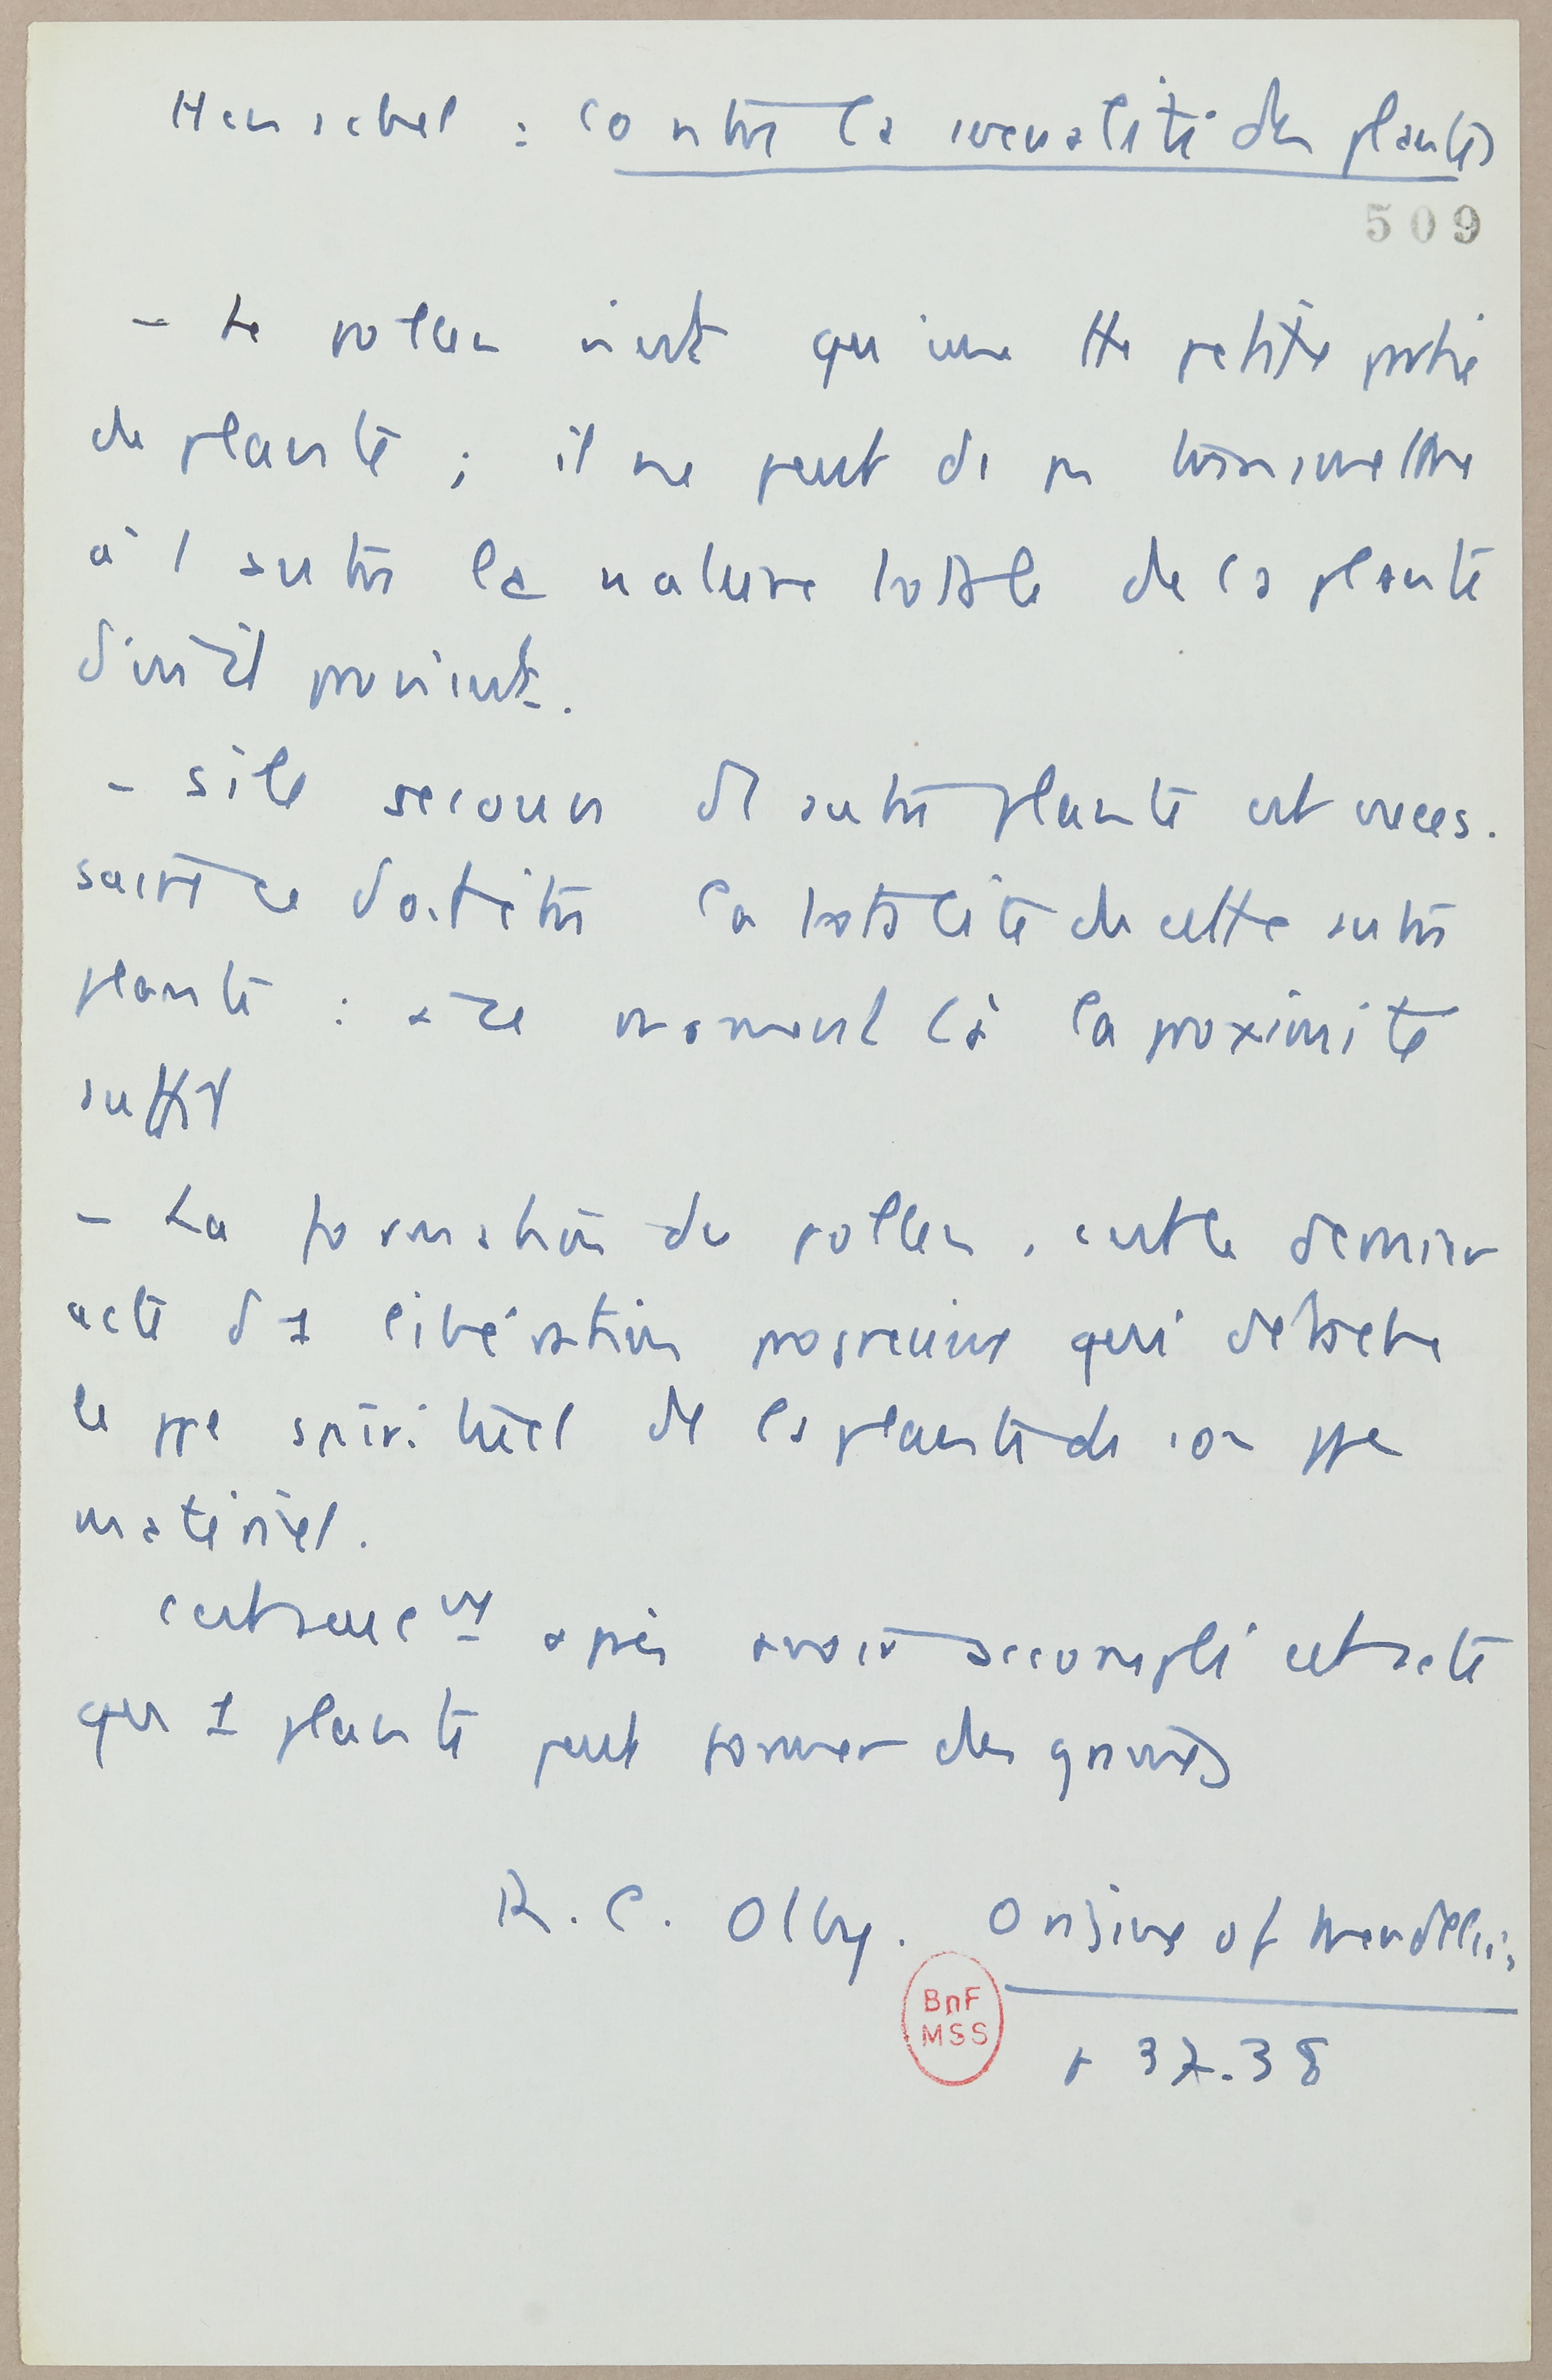 Henschel : contre la sexualité des plantes
509
- Le pollen n'est qu'une tte petite partie
de plante ; il ne peut dc pas transmettre
à l'autre la nature totale de la plante
d'où il provient.
- si le secours de autre plante est néces-
saire ce doit être la totalité de cette autre
plante : à ce moment là la proximité
suffit
- La formation du pollen, c'est le dernier
acte d'1 libération progressive qui détache
le ppe spirituel de la plante de son ppe
matériel.
c'est seulemt après avoir accompli cet acte
que 1 plante peut former des graines
R. C. Olby. Origins of Mendelism
p 37.38
BnF
MSS